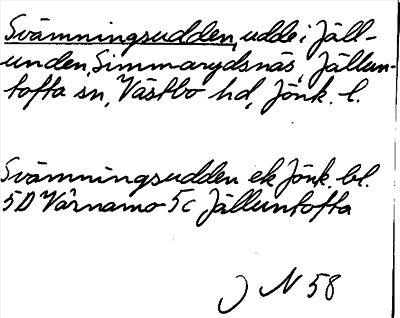 Svämningsudden, udde i Jäll-
unden, Simmarydsnäs, Jällun-
tofta sn, Västbo hd, Jönk. l.
Svämningsudden ek Jönk. bl.
5D Värnamo 5c Jälluntofta
J N 58